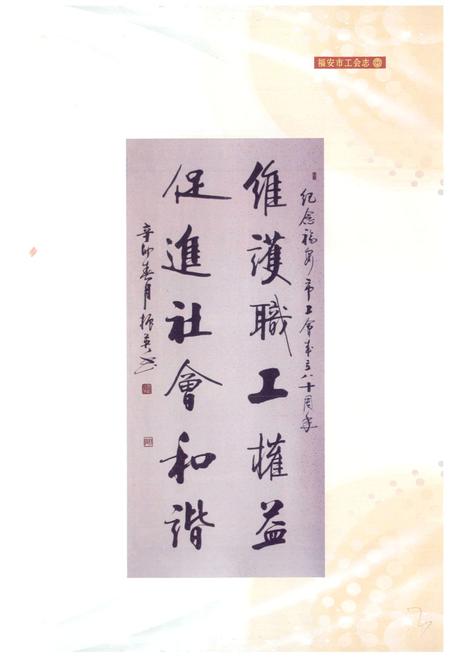 福安市工会志
纪念福安市工會成立八十周年
維護職工權益
促進社會和諧
辛卯春月振英书